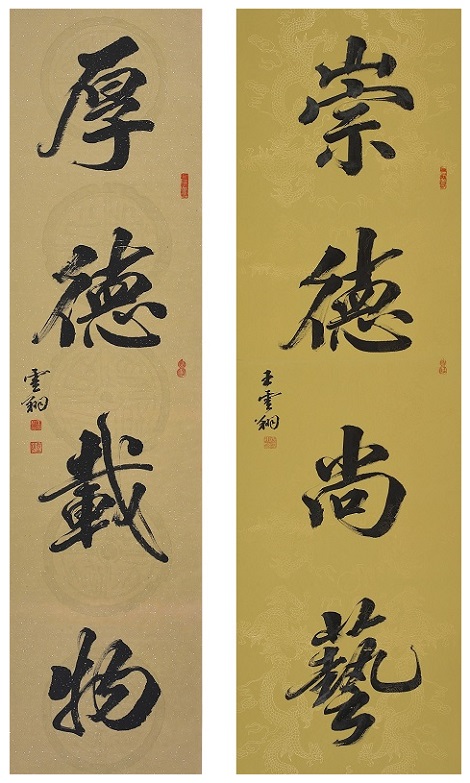 崇德尚藝
王雲翔
厚德載物
雲翔